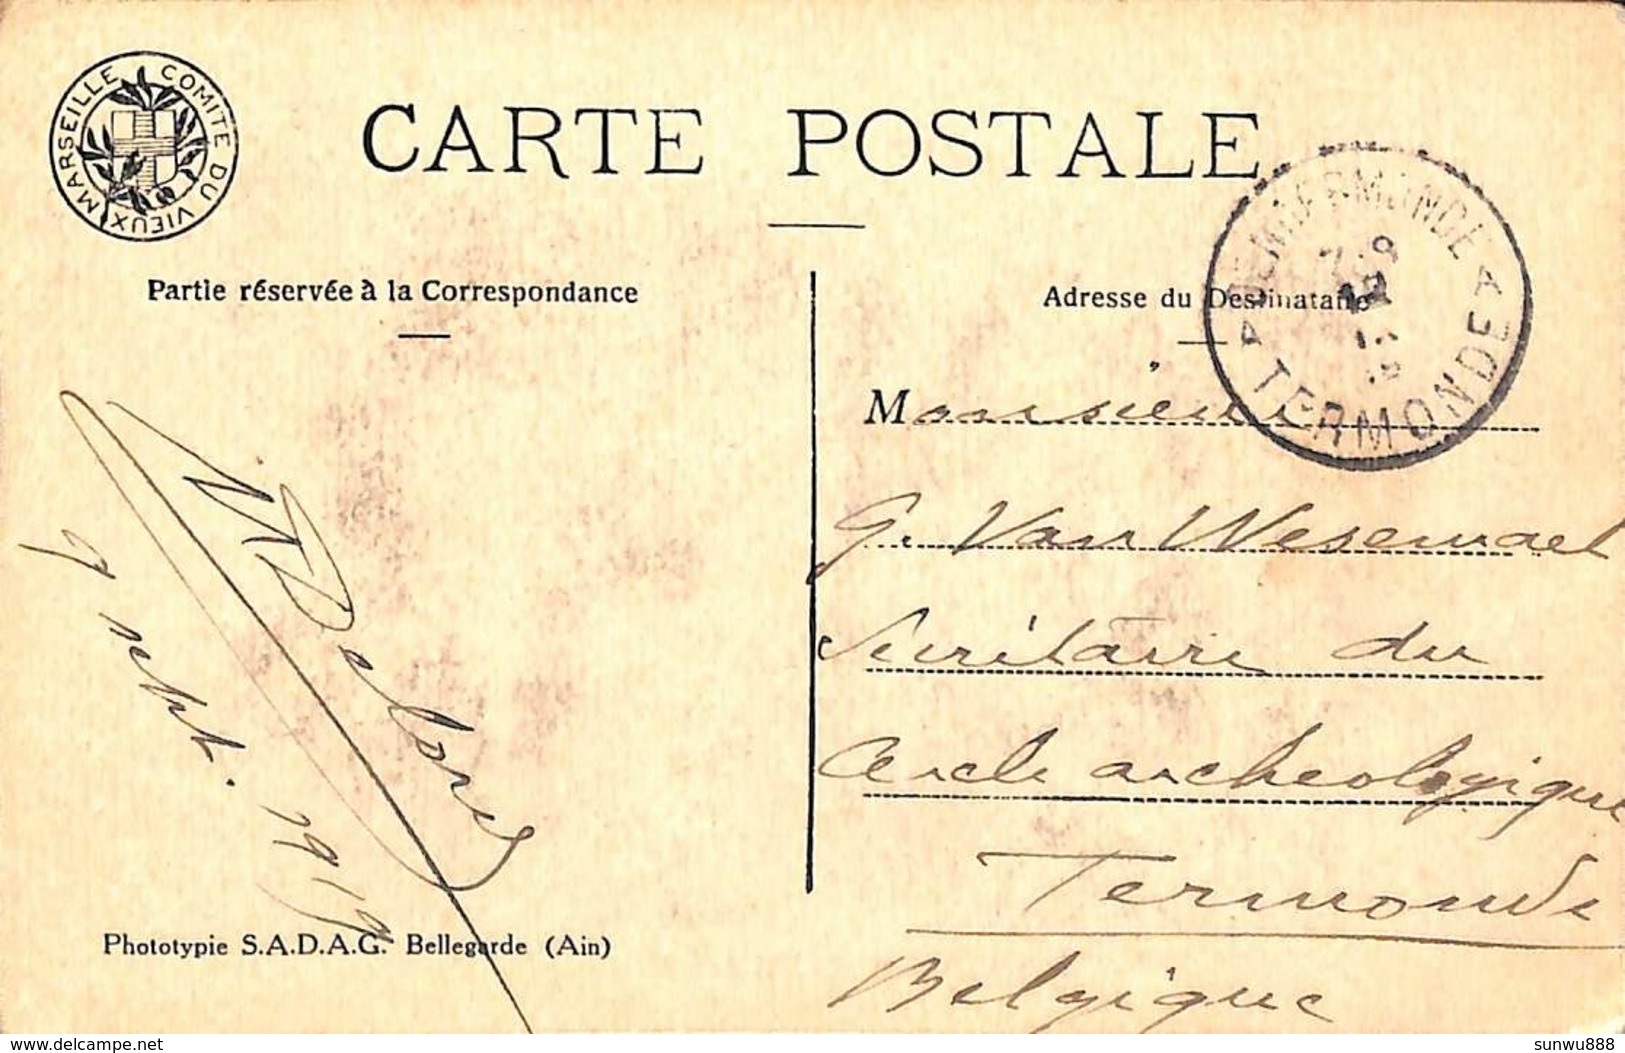 COMITÉ DU VIEUX MARSEILLE
CARTE POSTALE
Partie réservée à la Correspondance
Adresse du Destinataire
DENDERMONDE
TERMONDE
Monsieur
G. Van Wesemael
Secrétaire du
Cercle archeologique
Termonde
Belgique
9 sept. 1919
Phototypie S.A.D.A.G. Bellegarde (Ain)
delcampe.net
sunwu888